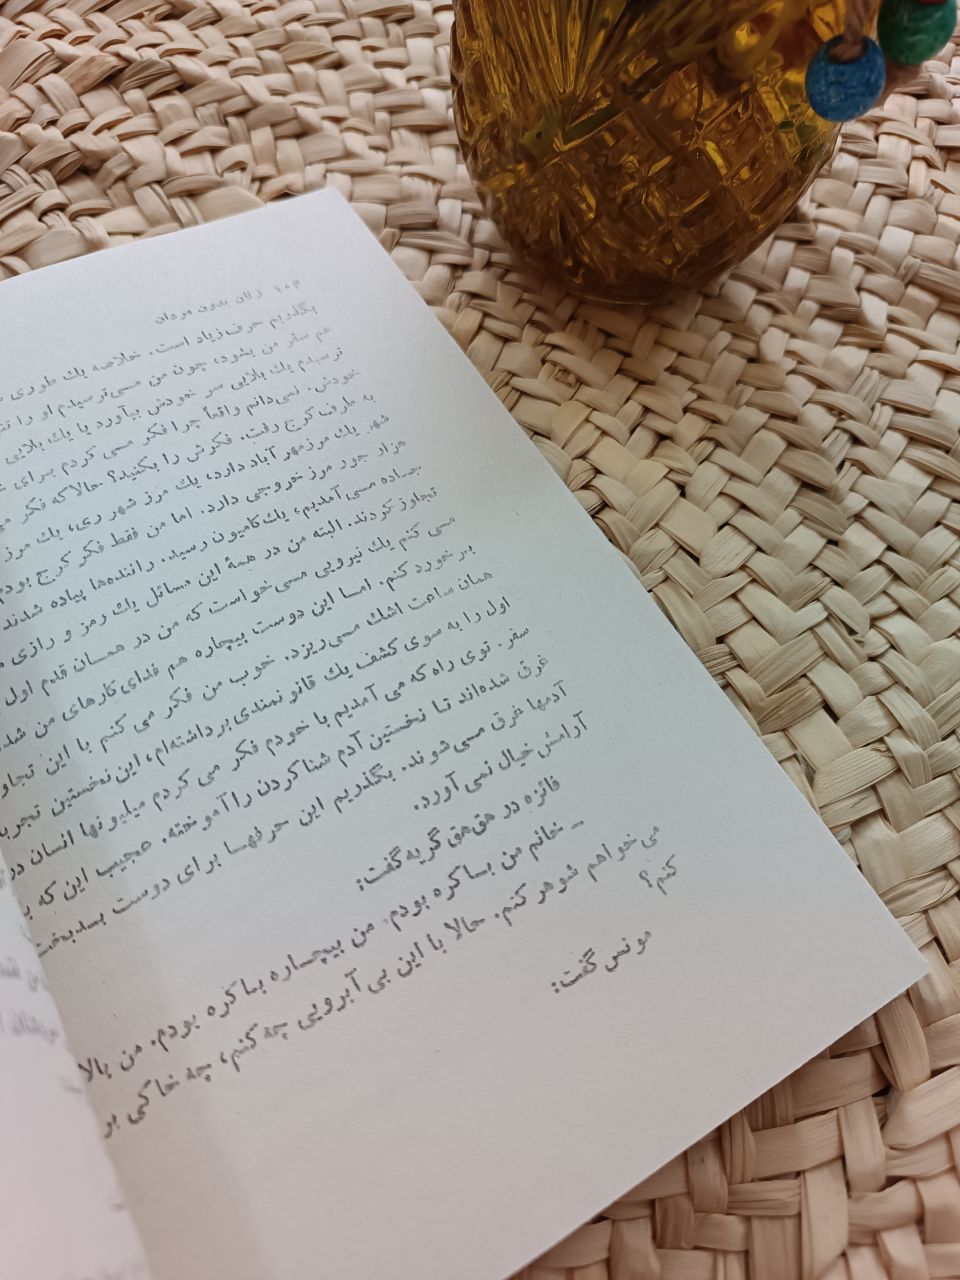 ۱۰۴ زنان بدون مردان
بگذریم حرف زیاد است. خلاصه یك طوری
هم سفر من بشود، چون من می‌ترسیدم او را
ترسیدم یك بلایی سر خودش بیاورد یا یك بلایی
خودش. نمی‌دانم واقعاً چرا فکر می کردم برای
به طرف کرج رفت. فکرش را بکنید؟ حالا که فکر
شهر یك مرز مهرآباد دارد، یك مرز شهر ری، یك مرز
هزار جور مرز خروجی دارد. اما من فقط فکر کرج بودم
پیاده می آمدیم، یك کامیون رسید. راننده‌ها پیاده شدند
تجاوز کردند. البته من در همهٔ این مسائل یك رمز و رازی
می کنم یك نیرویی می‌خواست که من در همان قدم اول
برخورد کنم. اما این دوست بیچاره هم فدای کارهای من شد
همان ساعت اشك می‌ریزد. خوب من فکر می کنم با این
اول را به سوی کشف یك قانونمندی برداشته‌ام، این نخستین
سفر. توی راه که می آمدیم با خودم فکر می کردم میلیونها انسان در
غرق شده‌اند تا نخستین آدم شناکردن را آموخته. عجیب این که
آدمها غرق می‌شوند. بگذریم این حرفها برای دوست بدبخت
آرامش خیال نمی آورد.
فائزه در هق‌هق گریه گفت:
ـ خانم من باکره بودم. من بیچاره باکره بودم. من بالا
می‌خواهم شوهر کنم. حالا با این بی آبرویی چه کنم، چه خاکی بر
کنم؟
مونس گفت: